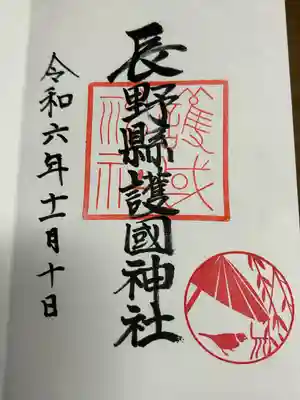 長野縣護國神社
令和六年十一月十日